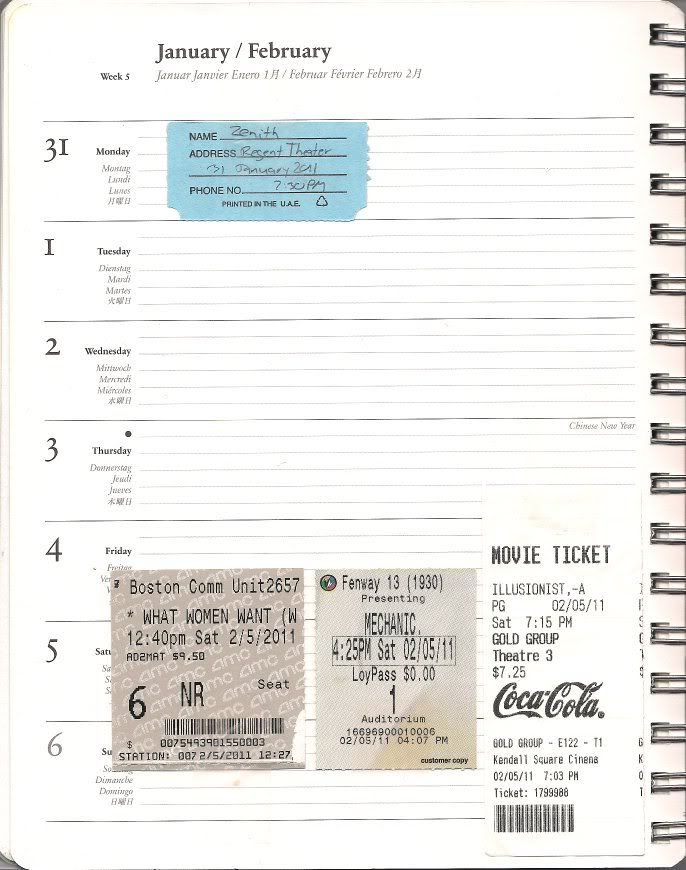 January / February
Week 5
Januar Janvier Enero 1月 / Februar Février Febrero 2月
31
Monday
Montag
Lundi
Lunes
月曜日
NAME Zenith
ADDRESS Regent Theater
31 January 2011
PHONE NO. 7:30PM
PRINTED IN THE U.A.E.
1
Tuesday
Dienstag
Mardi
Martes
火曜日
2
Wednesday
Mittwoch
Mercredi
Miércoles
水曜日
Chinese New Year
3
Thursday
Donnerstag
Jeudi
Jueves
木曜日
4
Friday
Freitag
5
6
Dimanche
Domingo
日曜日
Boston Comm Unit2657
* WHAT WOMEN WANT (W
12:40pm Sat 2/5/2011
AD2MAT $9.50
Seat
6 NR
$ 0075493901550003
STATION: 007 2/5/2011 12:27
Fenway 13 (1930)
Presenting
MECHANIC,
4:25PM Sat 02/05/11
LoyPass $0.00
1
Auditorium
16696900010006
02/05/11 04:07 PM
customer copy
MOVIE TICKET
ILLUSIONIST,-A
PG 02/05/11
Sat 7:15 PM
GOLD GROUP
Theatre 3
$7.25
Coca-Cola
GOLD GROUP - E122 - T1
Kendall Square Cinema
02/05/11 7:03 PM
Ticket: 1799988